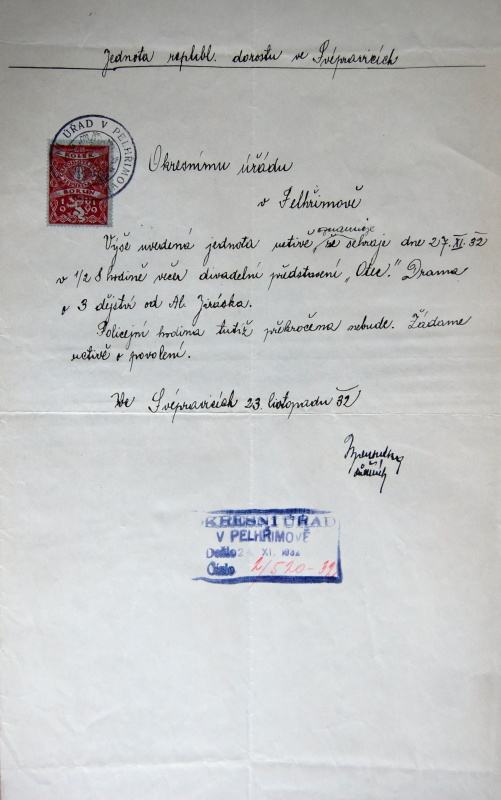 Jednota republ. dorostu ve Svépravicích
ÚŘAD V PELHŘIMOV
KOLEK
8
KORUN
Okresnímu úřadu
v Pelhřimově
oznamuje
Výše uvedená jednota uctivě že sehraje dne 27. XI. 32
v 1/2 8 hodině večer divadelní představení „Otec." Drama
o 3 dějství od Al. Jiráska.
Policejní hodina tutiž překročena nebude. Žádáme
uctivě o povolení.
Ve Svépravicích 23. listopadu 32
OKRESNÍ ÚŘAD
V PELHŘIMOVĚ
Došlo 24. XI. 1932
Číslo 2/520-32